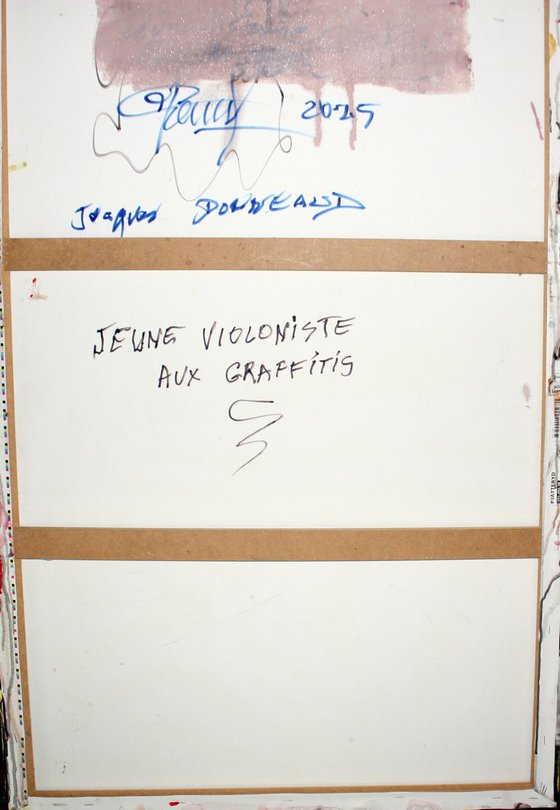 2025
Jacques DONNEAUD
JEUNE VIOLONISTE
AUX GRAFFITIS